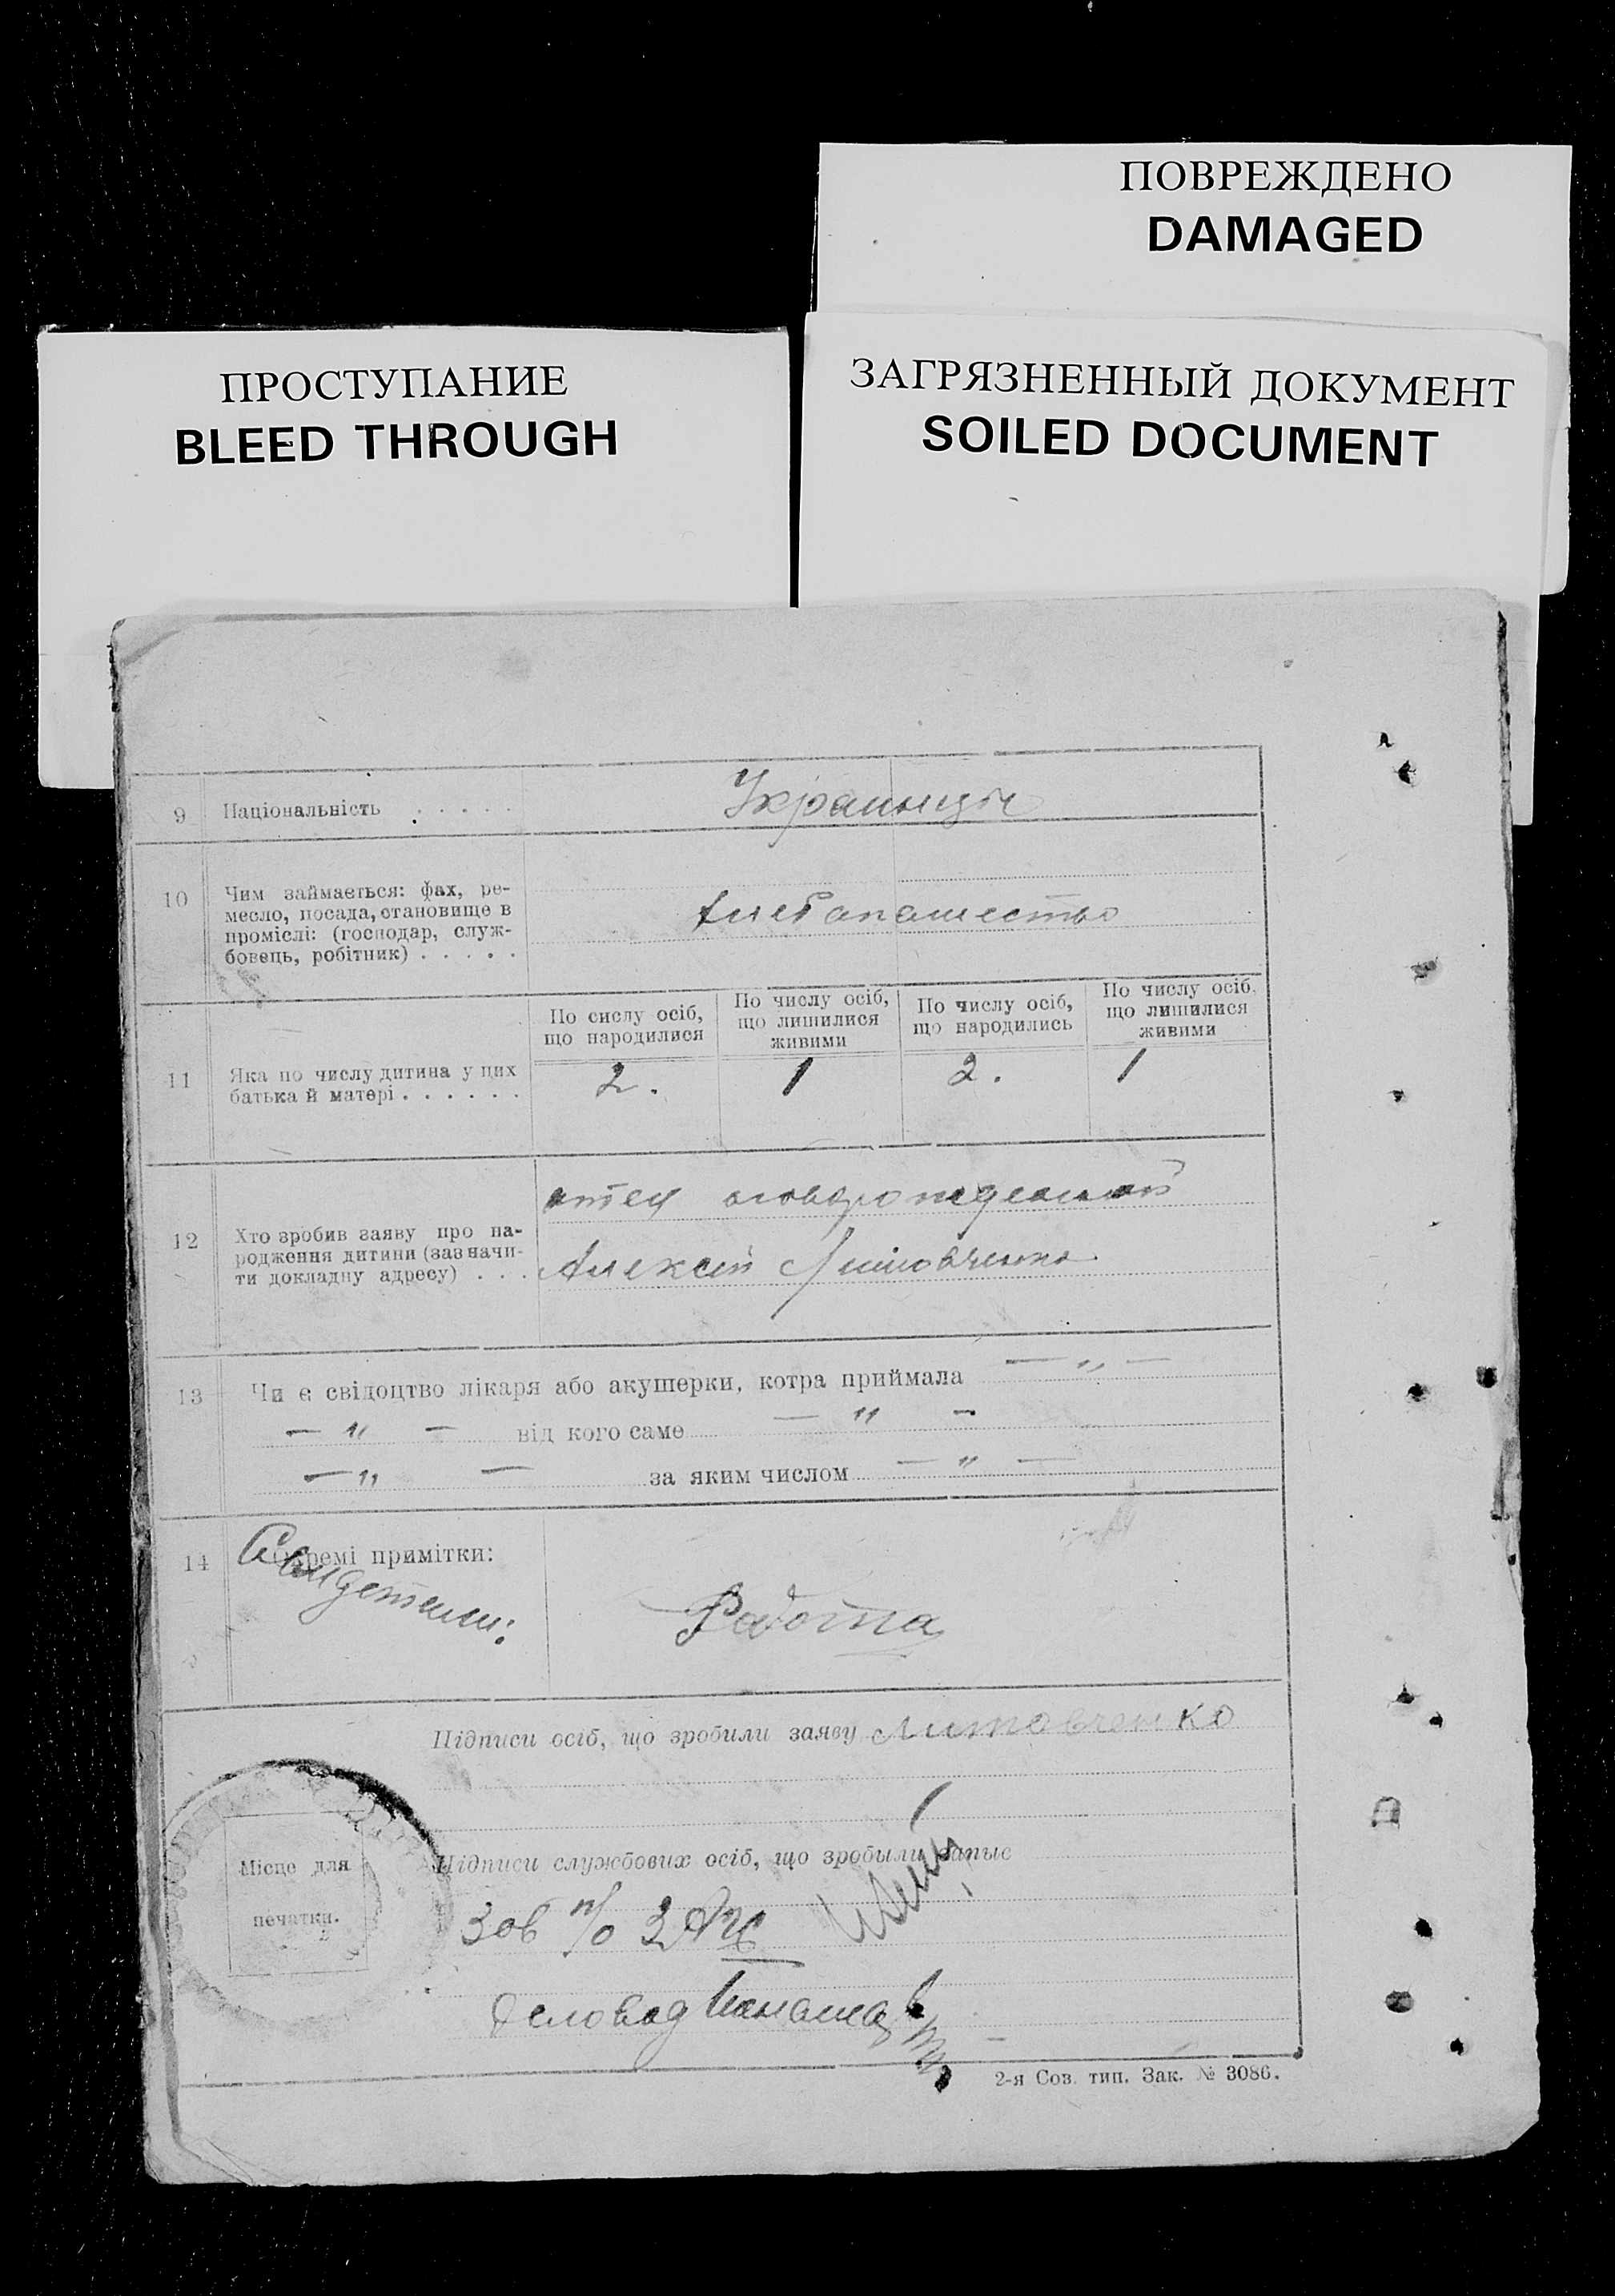 ПОВРЕЖДЕНО
DAMAGED
ПРОСТУПАНИЕ
BLEED THROUGH
ЗАГРЯЗНЕННЫЙ ДОКУМЕНТ
SOILED DOCUMENT
9 Національність . . . . .
Украинцы
10 Чим займається: фах, ре-
месло, посада, становище в
промислі: (господар, служ-
бовець, робітник) . . . . .
Хлебопашество
По сислу осіб,
що народилися
По числу осіб,
що лишилися
живими
По числу осіб,
що народились
По числу осіб,
що лишилися
живими
11 Яка по числу дитина у цих
батька й матері . . . . . .
2. 1 2. 1
12 Хто зробив заяву про на-
родження дитини (зазначи-
ти докладну адресу) . . .
отец новорожденной
Алексей Литовченко
13 Чи є свідоцтво лікаря або акушерки, котра приймала — „ —
— „ — від кого саме — „ —
— „ — за яким числом — „ —
14 Окремі примітки:
Свидетели:
Работа
Підписи осіб, що зробили заяву Литовченко
Підписи службових осіб, що зробыли запыс
Зав п/о ЗАГС
Деловод
Місце для
печатки.
2-я Сов. тип. Зак. № 3086.